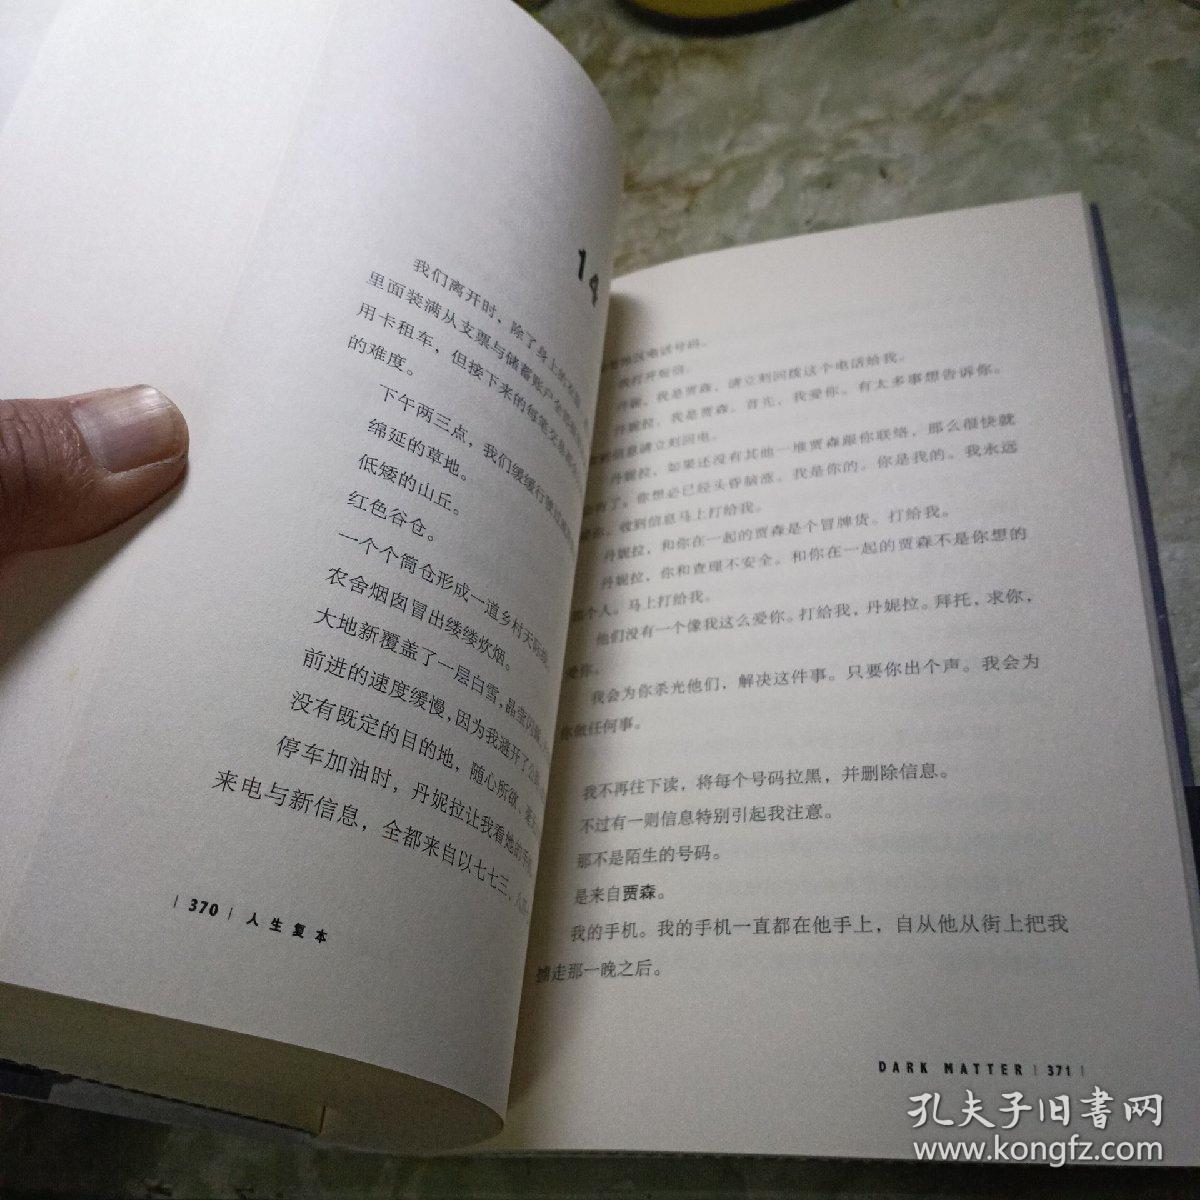 14
我们离开时，除了身上的
里面装满从支票与储蓄账户
用卡租车，但接下来的每笔交易
的难度。
下午两三点，我们缓缓行驶过
绵延的草地。
低矮的山丘。
红色谷仓。
一个个筒仓形成一道乡村天际线。
农舍烟囱冒出缕缕炊烟。
大地新覆盖了一层白雪，晶莹闪
前进的速度缓慢，因为我避开了公
没有既定的目的地，随心所欲、
停车加油时，丹妮拉让我看她的手机
来电与新信息，全都来自以七七三、八
| 370 | 人生复本
地区电话号码。
我打开短信。
丹妮，我是贾森，请立刻回拨这个电话给我。
丹妮拉，我是贾森。首先，我爱你。有太多事想告诉你。
到信息请立刻回电。
丹妮拉，如果还没有其他一堆贾森跟你联络，那么很快就
有了。你想必已经头昏脑涨。我是你的。你是我的。我永远
爱你。收到信息马上打给我。
丹妮拉，和你在一起的贾森是个冒牌货。打给我。
丹妮拉，你和查理不安全。和你在一起的贾森不是你想的
那个人。马上打给我。
他们没有一个像我这么爱你。打给我，丹妮拉。拜托，求你，
爱你。
我会为你杀光他们，解决这件事。只要你出个声。我会为
你做任何事。
我不再往下读，将每个号码拉黑，并删除信息。
不过有一则信息特别引起我注意。
那不是陌生的号码。
是来自贾森。
我的手机。我的手机一直都在他手上，自从他从街上把我
掳走那一晚之后。
DARK MATTER | 371 |
孔夫子旧书网
www.kongfz.com